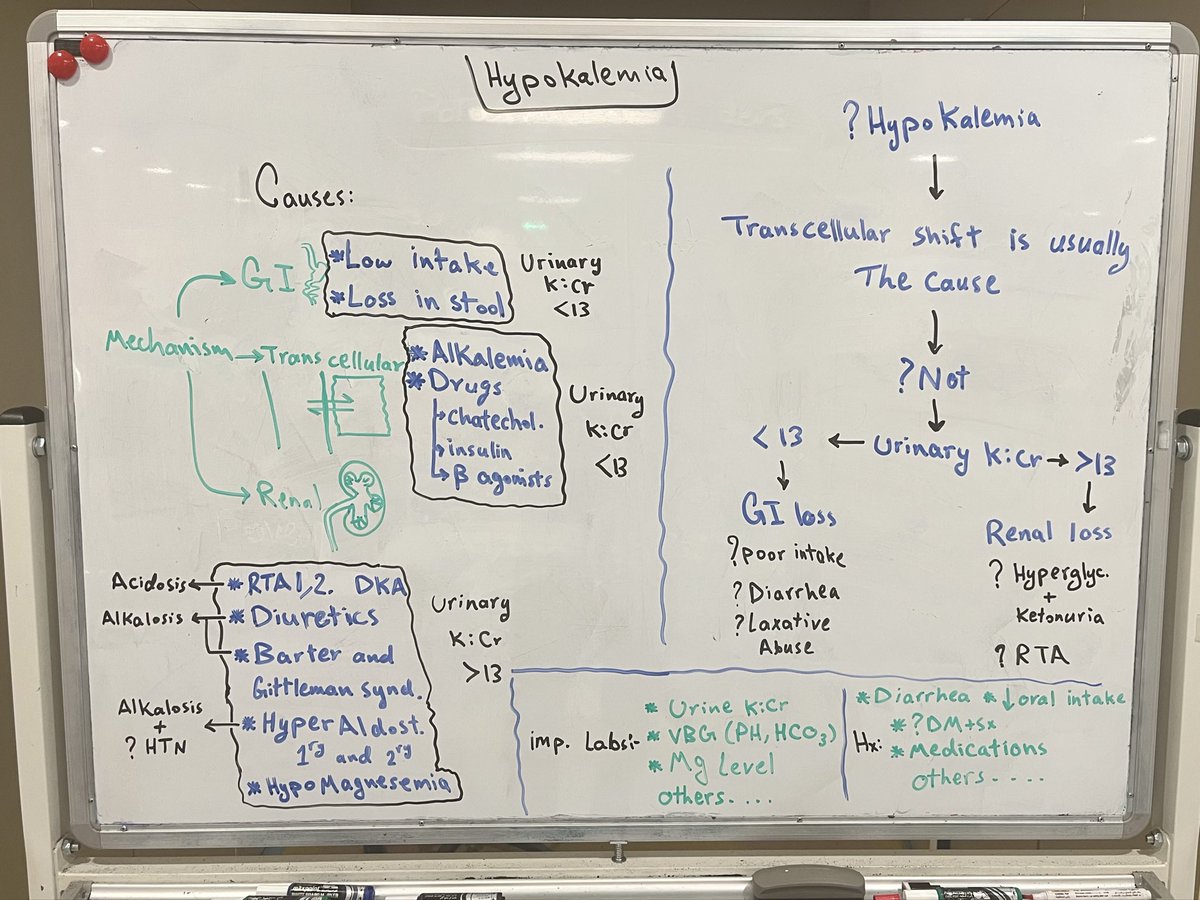 Hypokalemia
Causes:
Mechanism
GI
*Low intake
*Loss in stool
Urinary
K:Cr
<13
Trans cellular
*Alkalemia
*Drugs
chatechol.
insulin
β agonists
Urinary
K:Cr
<13
Renal
*RTA1,2. DKA
*Diuretics
*Barter and
Gittleman synd.
*HyperAldost.
1ry and 2ry
*HypoMagnesemia
Acidosis
Alkalosis
Alkalosis
+
? HTN
Urinary
K:Cr
>13
? Hypokalemia
Transcellular shift is usually
The cause
? Not
Urinary K:Cr
<13
GI loss
? poor intake
? Diarrhea
? Laxative
Abuse
>13
Renal loss
? Hyperglyc.
+
Ketonuria
? RTA
imp. Labs:-
* Urine K:Cr
* VBG (PH, HCO3)
* Mg Level
others. ...
Hx:
*Diarrhea *↓oral intake
*?DM+Sx
*Medications
others. . . .